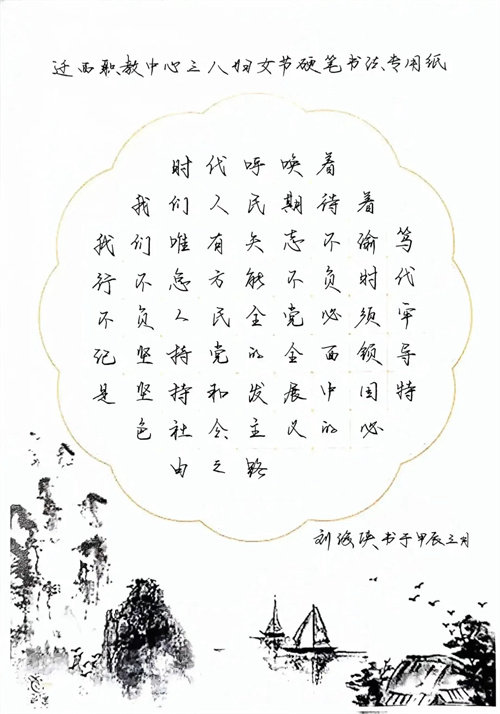 迁西职教中心三八妇女节硬笔书法专用纸
时代呼唤着
我们人民期待着
我们唯有矢志不渝笃
行不怠方能不负时代
不负人民全党必须牢
记坚持党的全面领导
是坚持和发展中国特
色社会主义的必
由之路
刘书于甲辰三月